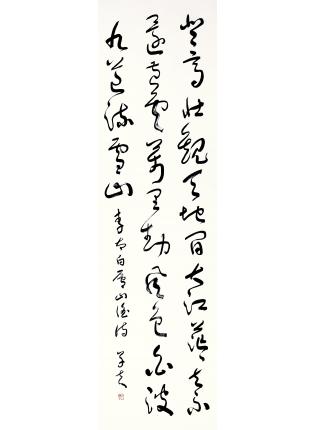 登高壯觀天地間大江茫々去不
還黃雲萬里動風色白波
九道流雪山
李太白廬山謠詩